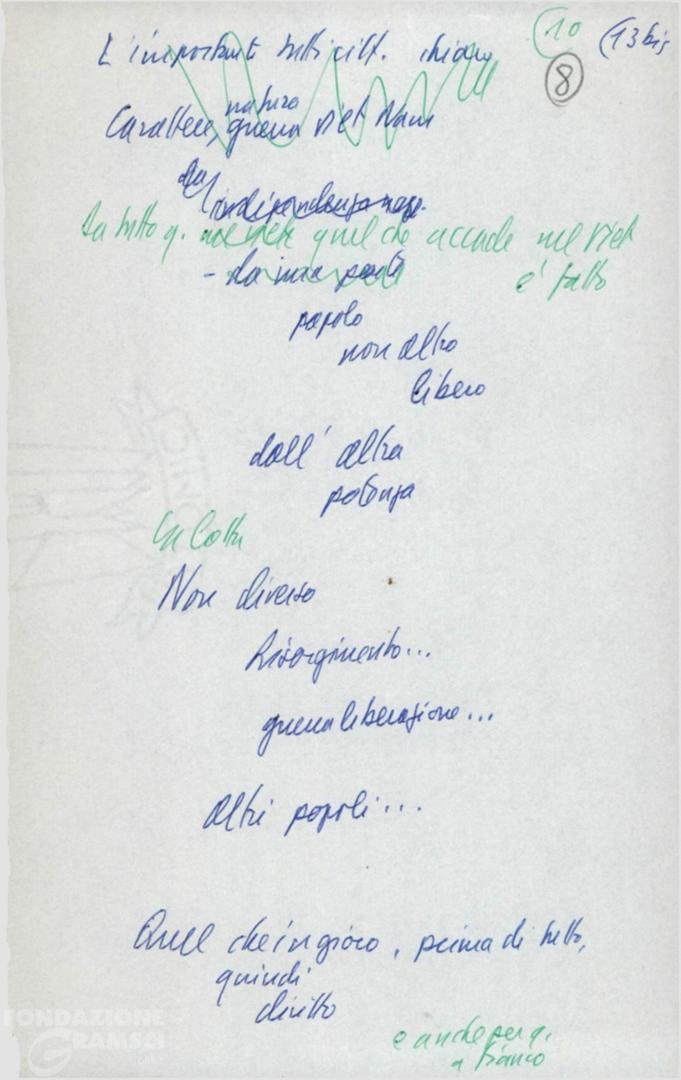 (10 (13 bis
8
L'important tutti citt. chiaro
natura
Carattere, guerra Viet Nam
indipendenza naz.
Da tutto q. quel che accade nel Viet
è fatto
- da una parte
popolo
non altro
libero
dall'altra
potenza
La lotta
Non diverso
Risorgimento...
guerra liberazione...
Altri popoli...
Quell che in gioco, prima di tutto,
quindi
diritto
e anche per q.
a fianco
FONDAZIONE
GRAMSCI